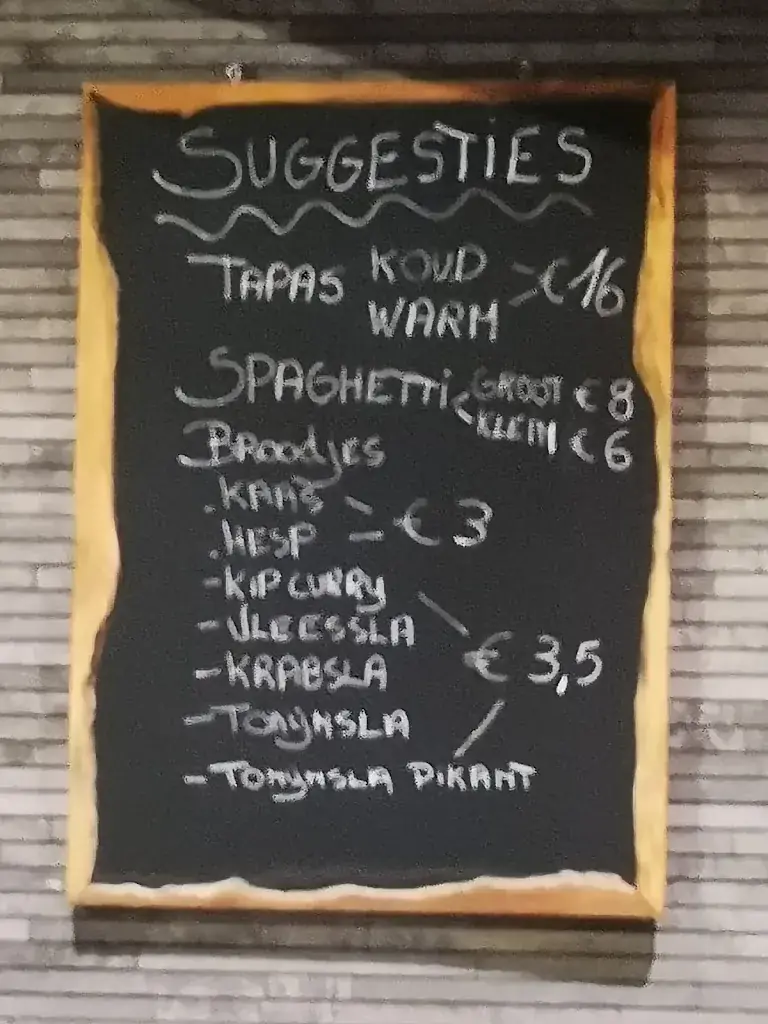 SUGGESTIES
TAPAS KOUD
WARM € 16
SPAGHETTI GROOT € 8
KLEIN € 6
Broodjes
.KAAS
.HESP € 3
-KIP CURRY
-VLEESSLA
-KRABSLA € 3,5
-TONIJNSLA
-TONIJNSLA PIKANT